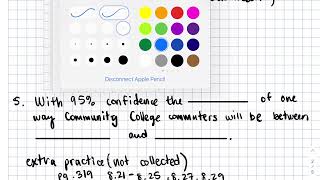 Disconnect Apple Pencil
5. With 95% confidence the ________ of one
way Community College commuters will be between
________ and ________.
extra practice (not collected)
pg. 319 8.21 - 8.25, 8.27, 8.29